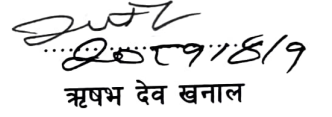 २०८१/८/१
ऋषभ देव खनाल